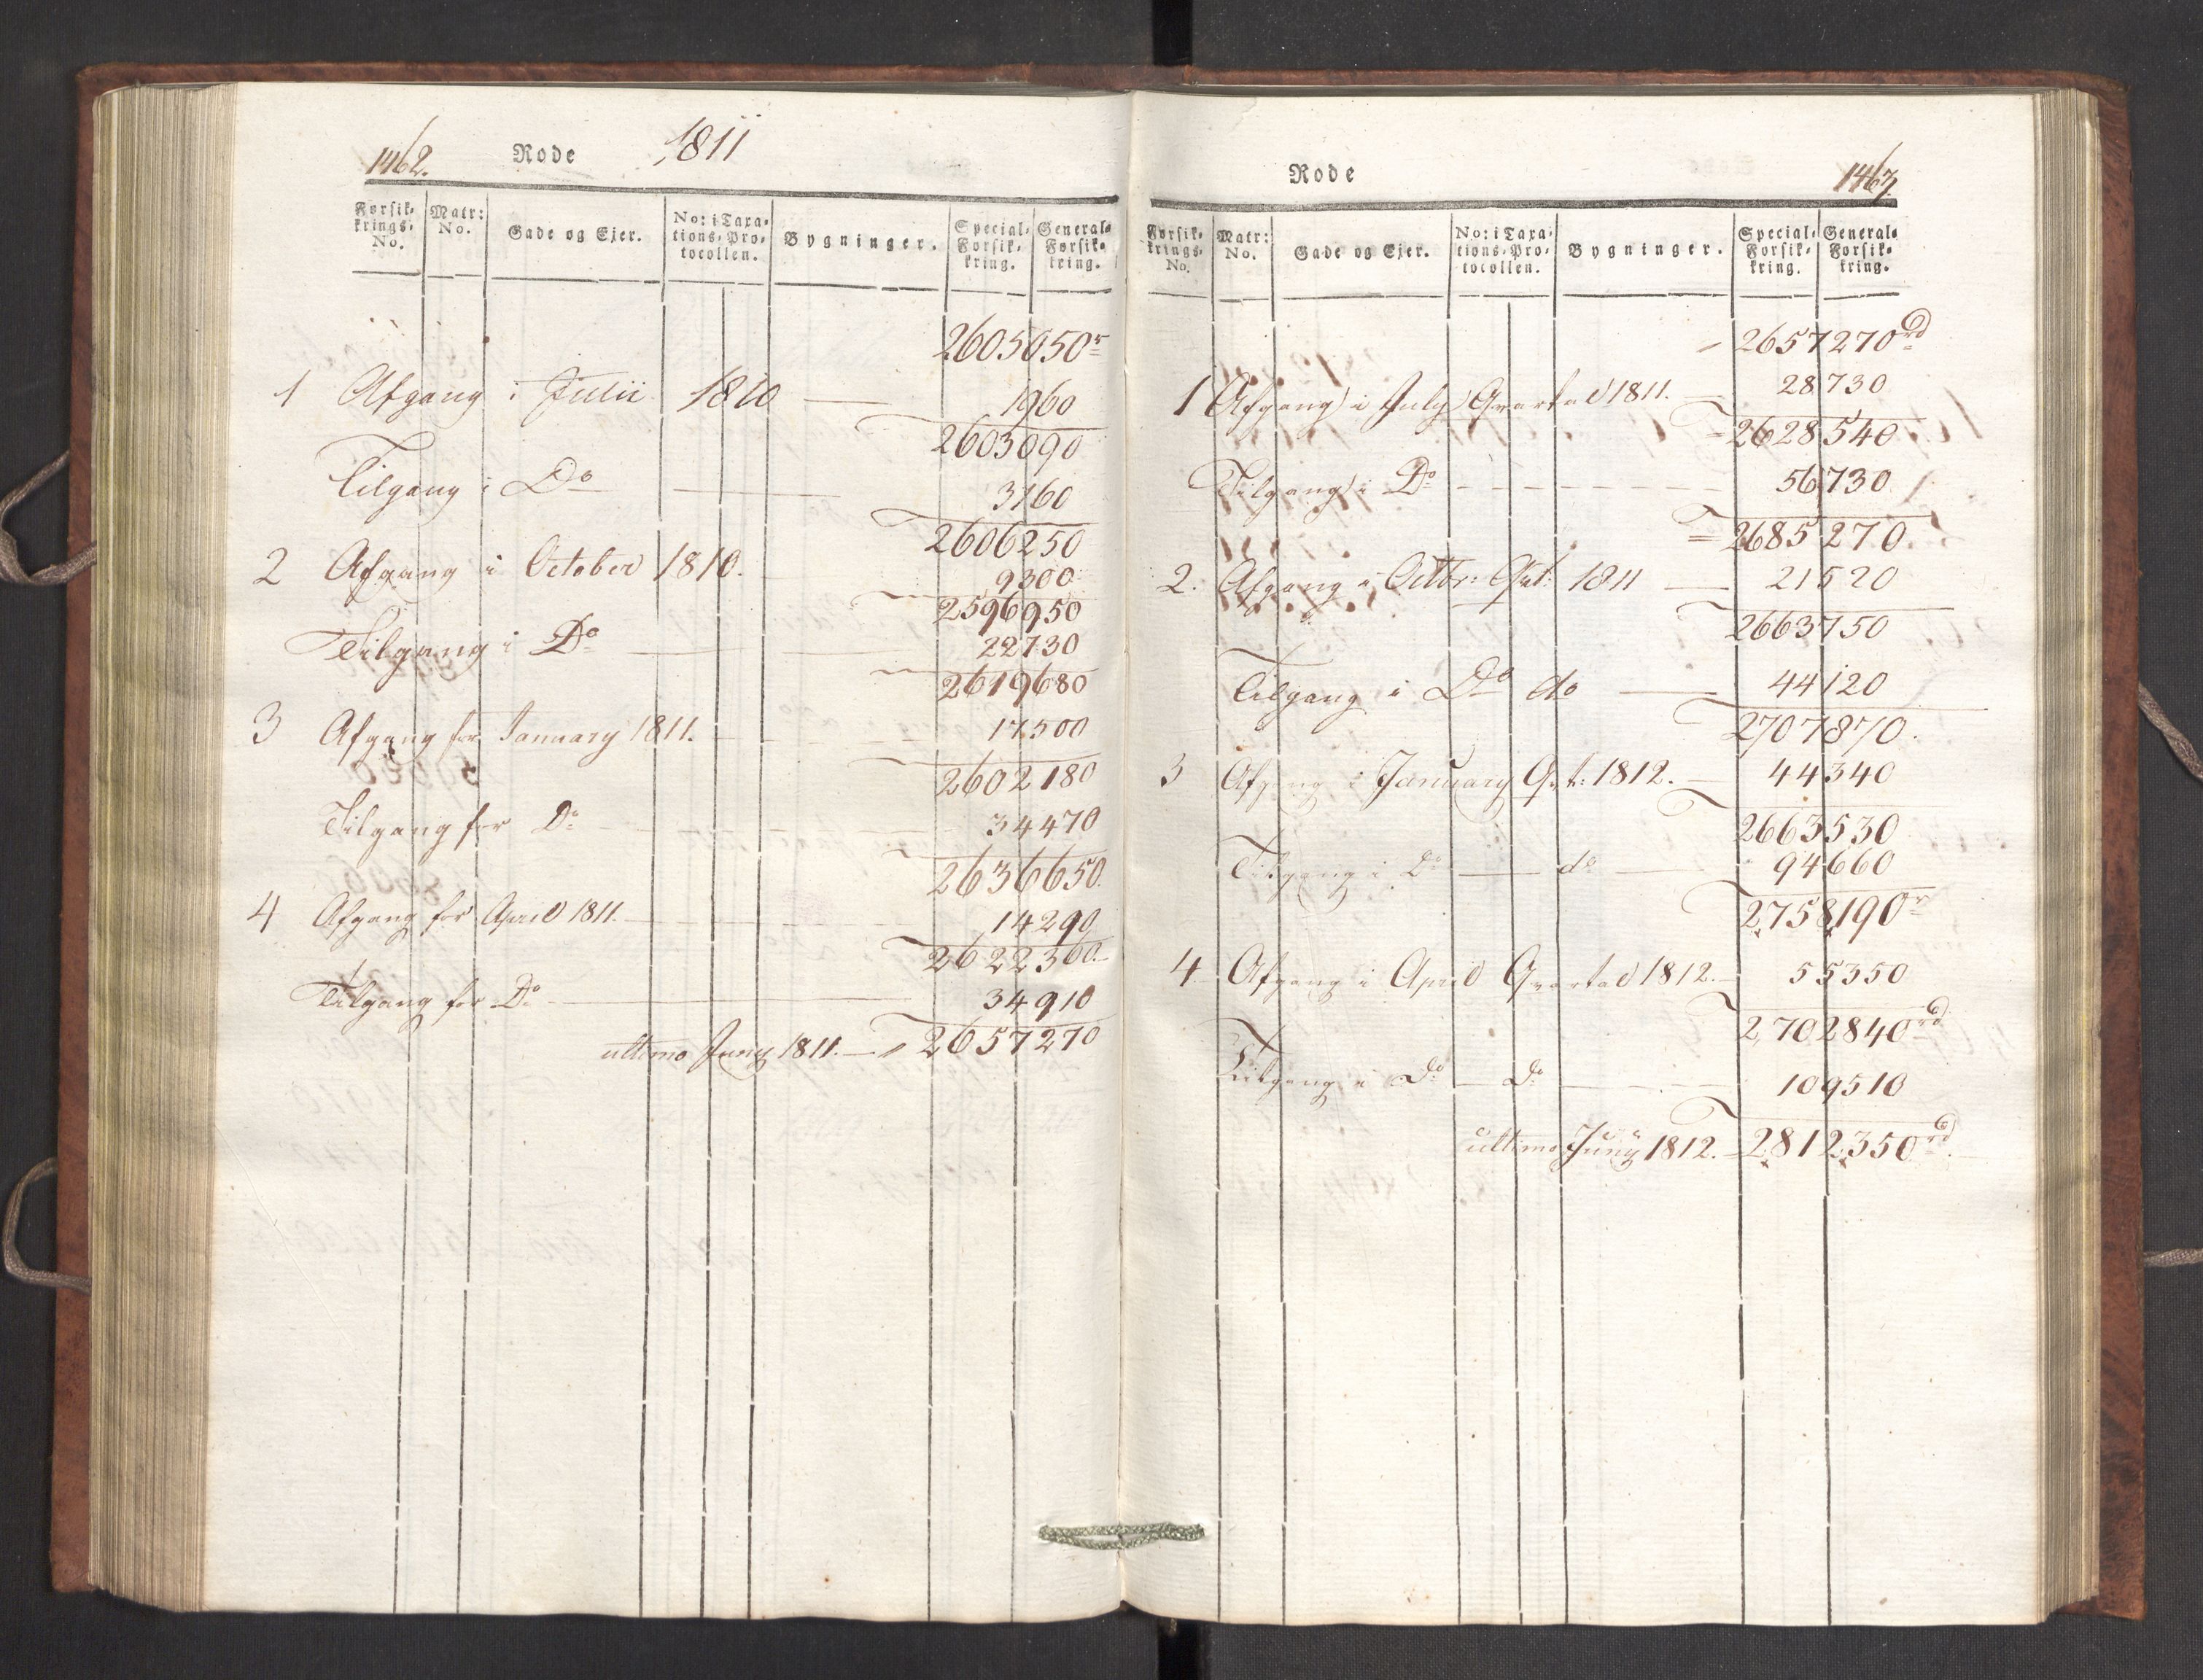 1462. Rode 1811
Forsik-
krings-
No.
Matr:
No.
Gade og Ejer.
No: i Taxa-
tions-Pro-
tocollen.
Bygninger.
Special-
Forsik-
kring.
General-
Forsik-
kring.
2605050r
1 Afgang i Julii 1810 — 1960
2603090
Tilgang i Do — 3160
2606250
2 Afgang i October 1810. 9300
2596950
Tilgang i Do — 22730
2619680
3 Afgang for January 1811. 17500
2602180
Tilgang for Do 34470
2636650.
4 Afgang for April 1811. 14290
2622360.
Tilgang for Do — 34910
ultimo Juny 1811. — 2657270
Rode 1463
Forsik-
krings-
No.
Matr:
No.
Gade og Ejer.
No: i Taxa-
tions-Pro-
tocollen.
Bygninger.
Special-
Forsik-
kring.
General-
Forsik-
kring.
2657270rd
1 Afgang i July Qvartal 1811. 28730
2628540
Tilgang i Do — 56730
2685270.
2. Afgang i Octbr: Qvt: 1811 — 21520
2663750
Tilgang i Do do — 44120
2707870.
3 Afgang i January Qvt: 1812. — 44340
2663530
Tilgang i Do — do — 94660
2758190r
4 Afgang i April Qvartal 1812. — 55350
2702840rd
Tilgang i Do — Do — 109510
ultimo Junÿ 1812. — 2812350rd